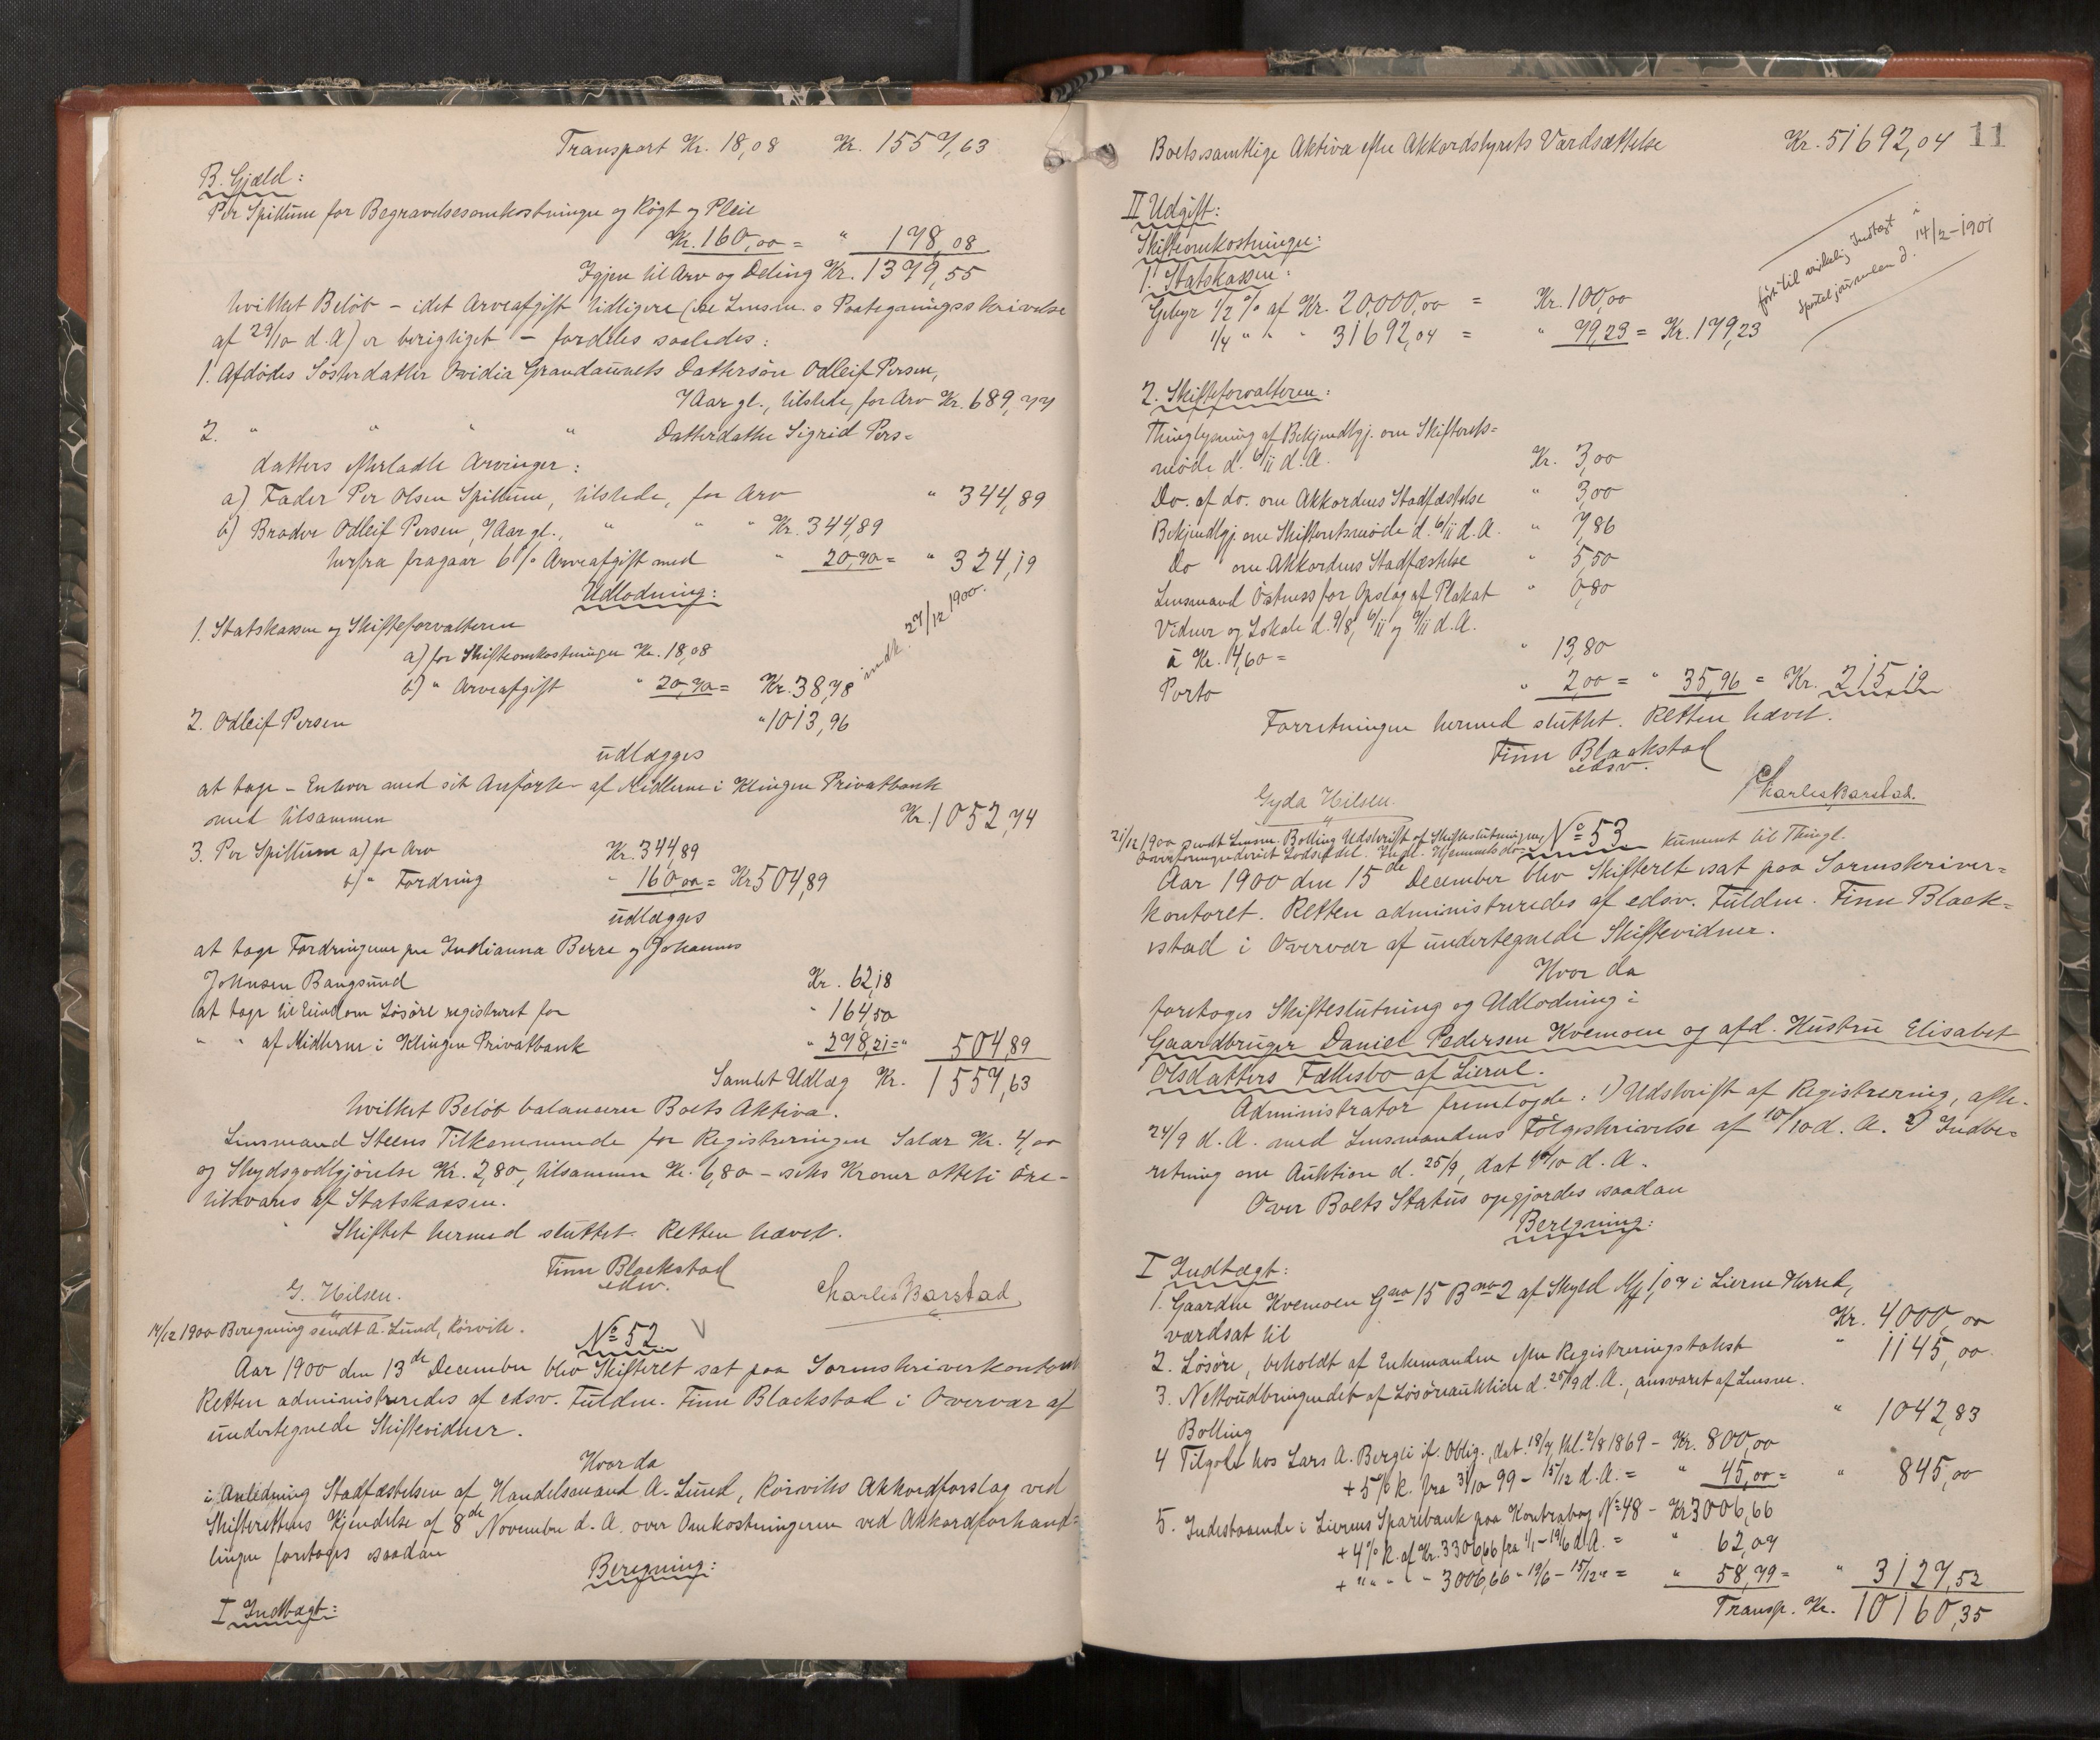 Transport Kr. 18,08 Kr. 1557,63
B. Gjæld:
Per Spillum for Begravelsesomkostninger og Røgt og Pleie
Kr. 160,00 = " 178,08
Igjen til Arv og Deling Kr. 1379,55
hvilket Beløb – idet Arveafgift tidligere (se Lensm.s Paategningsskrivelse
af 29/10 d.A) er berigtiget – fordeles saaledes:
1. Afdødes Søsterdatter Ovidia Grandaunets Dattersøn Odleif Persen,
7 Aar gl., tilstede, for Arv Kr. 689,77
2. " " " " Datterdatter Sigrid Pers=
datters efterladte Arvinger:
a) Fader Per Olsen Spillum, tilstede, for Arv " 344,89
b) Broder Odleif Persen, 7 Aar gl., " " " Kr. 344,89
herfra fragaar 6% Arveafgift med " 20,70 = " 324,19
Udlodning:
1. Statskassen og Skifteforvalteren
a) for Skifteomkostninger Kr. 18,08
b) " Arveafgift " 20,70 = Kr. 38,78 indk. 27/12 1900.
2. Odleif Persen " 1013,96
udlægges
at tage – Enhver med sit Anførte – af Midlerne i Klingen Privatbank
med tilsammen Kr. 1052,74
3. Per Spillum a) for Arv Kr. 344,89
b) " Fordring " 160,00 = Kr 504,89
udlægges
at tage Fordringerne paa Indianna Berre og Johannes
Johnsen Bangsund Kr. 62,18
at tage til Eiendom Løsøre registreret for " 164,50
" " af Midlerne i Klingen Privatbank " 278,21 = " 504,89
Samlet Udlæg Kr. 1557,63
hvilket Beløb balancerer Boets Aktiva.
Lensmand Steens Tilkommende for Registreringen Salær Kr. 4,00
og Skydsgodtgjørelse Kr. 2,80, tilsammen Kr. 6,80 – seks Kroner otteti Øre –
tilsvares af Statskassen.
Skiftet hermed sluttet. Retten hævet.
Finn Blackstad
edsv.
G. Hilsen. Charles Barstad
14/12 1900 Beregning sendt A. Lund, Rørvik.
No 52
Aar 1900 den 13de December blev Skifteret sat paa Sorenskriverkontoret
Retten administreredes af edsv. Fuldm. Finn Blackstad i Overvær af
undertegnede Skiftevidner.
Hvor da
i Anledning Stadfæstelsen af Handelsmand A. Lund, Rørviks Akkordforslag ved
Skifterettens Kjendelse af 8de November d.A. over Omkostningerne ved Akkordforhand=
lingen foretoges saadan
Beregning:
I Indtægt:
Boets samtlige Aktiva efter Akkordstyrets Værdsættelse Kr. 51692,04 11
II Udgift:
Skifteomkostninger:
1. Statskassen:
Gebyr 1/2 % af Kr. 20,000,00 = Kr. 100,00
1/4 " " " 31692,04 = " 79,23 = Kr. 179,23
ført til virkelig Indtægt i
Sporteljournalen d. 14/2-1901
2. Skifteforvalteren:
Thinglysning af Bekjendtgj. om Skifterets=
møde d. 6/11 d.A. Kr. 3,00
Do. af do. om Akkordens Stadfæstelse " 3,00
Bekjendtgj. om Skifteretsmøde d. 6/11 d.A. " 7,86
Do om Akkordens Stadfæstelse " 5,50
Lensmand Østness for Opslag af Plakat " 0,80
Vidner og Lokale d. 9/8, 6/11 og 7/11 d.A.
à Kr. 4,60 = " 13,80
Porto " 2,00 = " 35,96 = Kr. 215,19
Forretningen hermed sluttet. Retten hævet.
Finn Blackstad
edsv.
Gyda Hilsen. Charles Barstad.
21/12 1900 sendt Lensm. Bolling Udskrift af Skifteslutningen,
No 53 kunmt til Thingl.
Aar 1900 den 15de December blev Skifteret sat paa Sorenskriver=
kontoret. Retten administreredes af edsv. Fuldm. Finn Black=
stad i Overvær af undertegnede Skiftevidner.
Hvor da
foretoges Skifteslutning og Udlodning i
Gaardbruger Daniel Pedersen Kvemoen og afd. Hustru Elisabet
Olsdatters Fællesbo af Lierne.
Administrator fremlagde: 1) Udskrift af Registrering, afh.
24/9 d.A. med Lensmandens Følgeskrivelse af 10/10 d.A. 2) Indbe=
retning om Auktion d. 25/9, dat. 10/10 d.A.
Over Boets Status opgjordes saadan
Beregning:
I Indtægt:
1. Gaarden Kvemoen Gno 15 Bno 2 af Skyld Mk 1,07 i Lierne Herred,
værdsat til Kr. 4000,00
2. Løsøre, beholdt af Enkemanden efter Registreringstakst " 1145,00
3. Nettoudbringendet af Løsøreauktion d. 25/9 d.A., ansvaret af Lensm.
Bolling " 1042,83
4 Tilgode hos Lars A. Bergli if. Oblig., dat. 18/7, thl. 2/8 1869 – Kr. 800,00
+ 5% R. fra 31/10 99 – 15/12 d.A. = " 45,00 = " 845,00
5. Indestaaende i Liernes Sparebank paa Kontrabog No 48 – Kr 3006,66
+ 4% R. af Kr. 3306,66 fra 1/1 – 19/6 d.A. = " 62,07
+ " " " " 3006,66 " 19/6 – 15/12 " = " 58,79 = " 3127,52
Transp. Kr. 10160,35